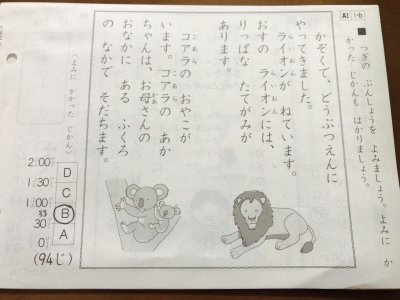 A1 1-b
■ つぎの ぶんしょうを よみましょう。よみに か
かった じかんも はかりましょう。
かぞくで、どうぶつえんに
やってきました。
ライオンが ねています。
らいおん
おすの ライオンには、
らいおん
りっぱな たてがみが
あります。
コアラの おやこが
こあら
います。コアラの あか
こあら
ちゃんは、お母さんの
かあ
おなかに ある ふくろ
の なかで そだちます。
（よみに かかった じかん）
D
C
B
A
2:00
1:30
1:00
33
30
0
(94じ)